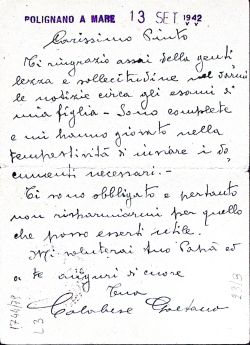 POLIGNANO A MARE 13 SET 1942
Carissimo Pinto
Ti ringrazio assai della genti
lezza e sollecitudine nel darmi
le notizie circa gli esami di
mia figlia - Sono complete
e mi hanno giovato nella
tempestività di inviare i do
cumenti necessari. -
Ti sono obbligato e pertanto
non risparmiarmi per quello
che posso esserti utile.
Mi saluterai tuo Papà ed
a te auguri di cuore
Tuo
Calabrese Gaetano
1744/79
L3
23/3